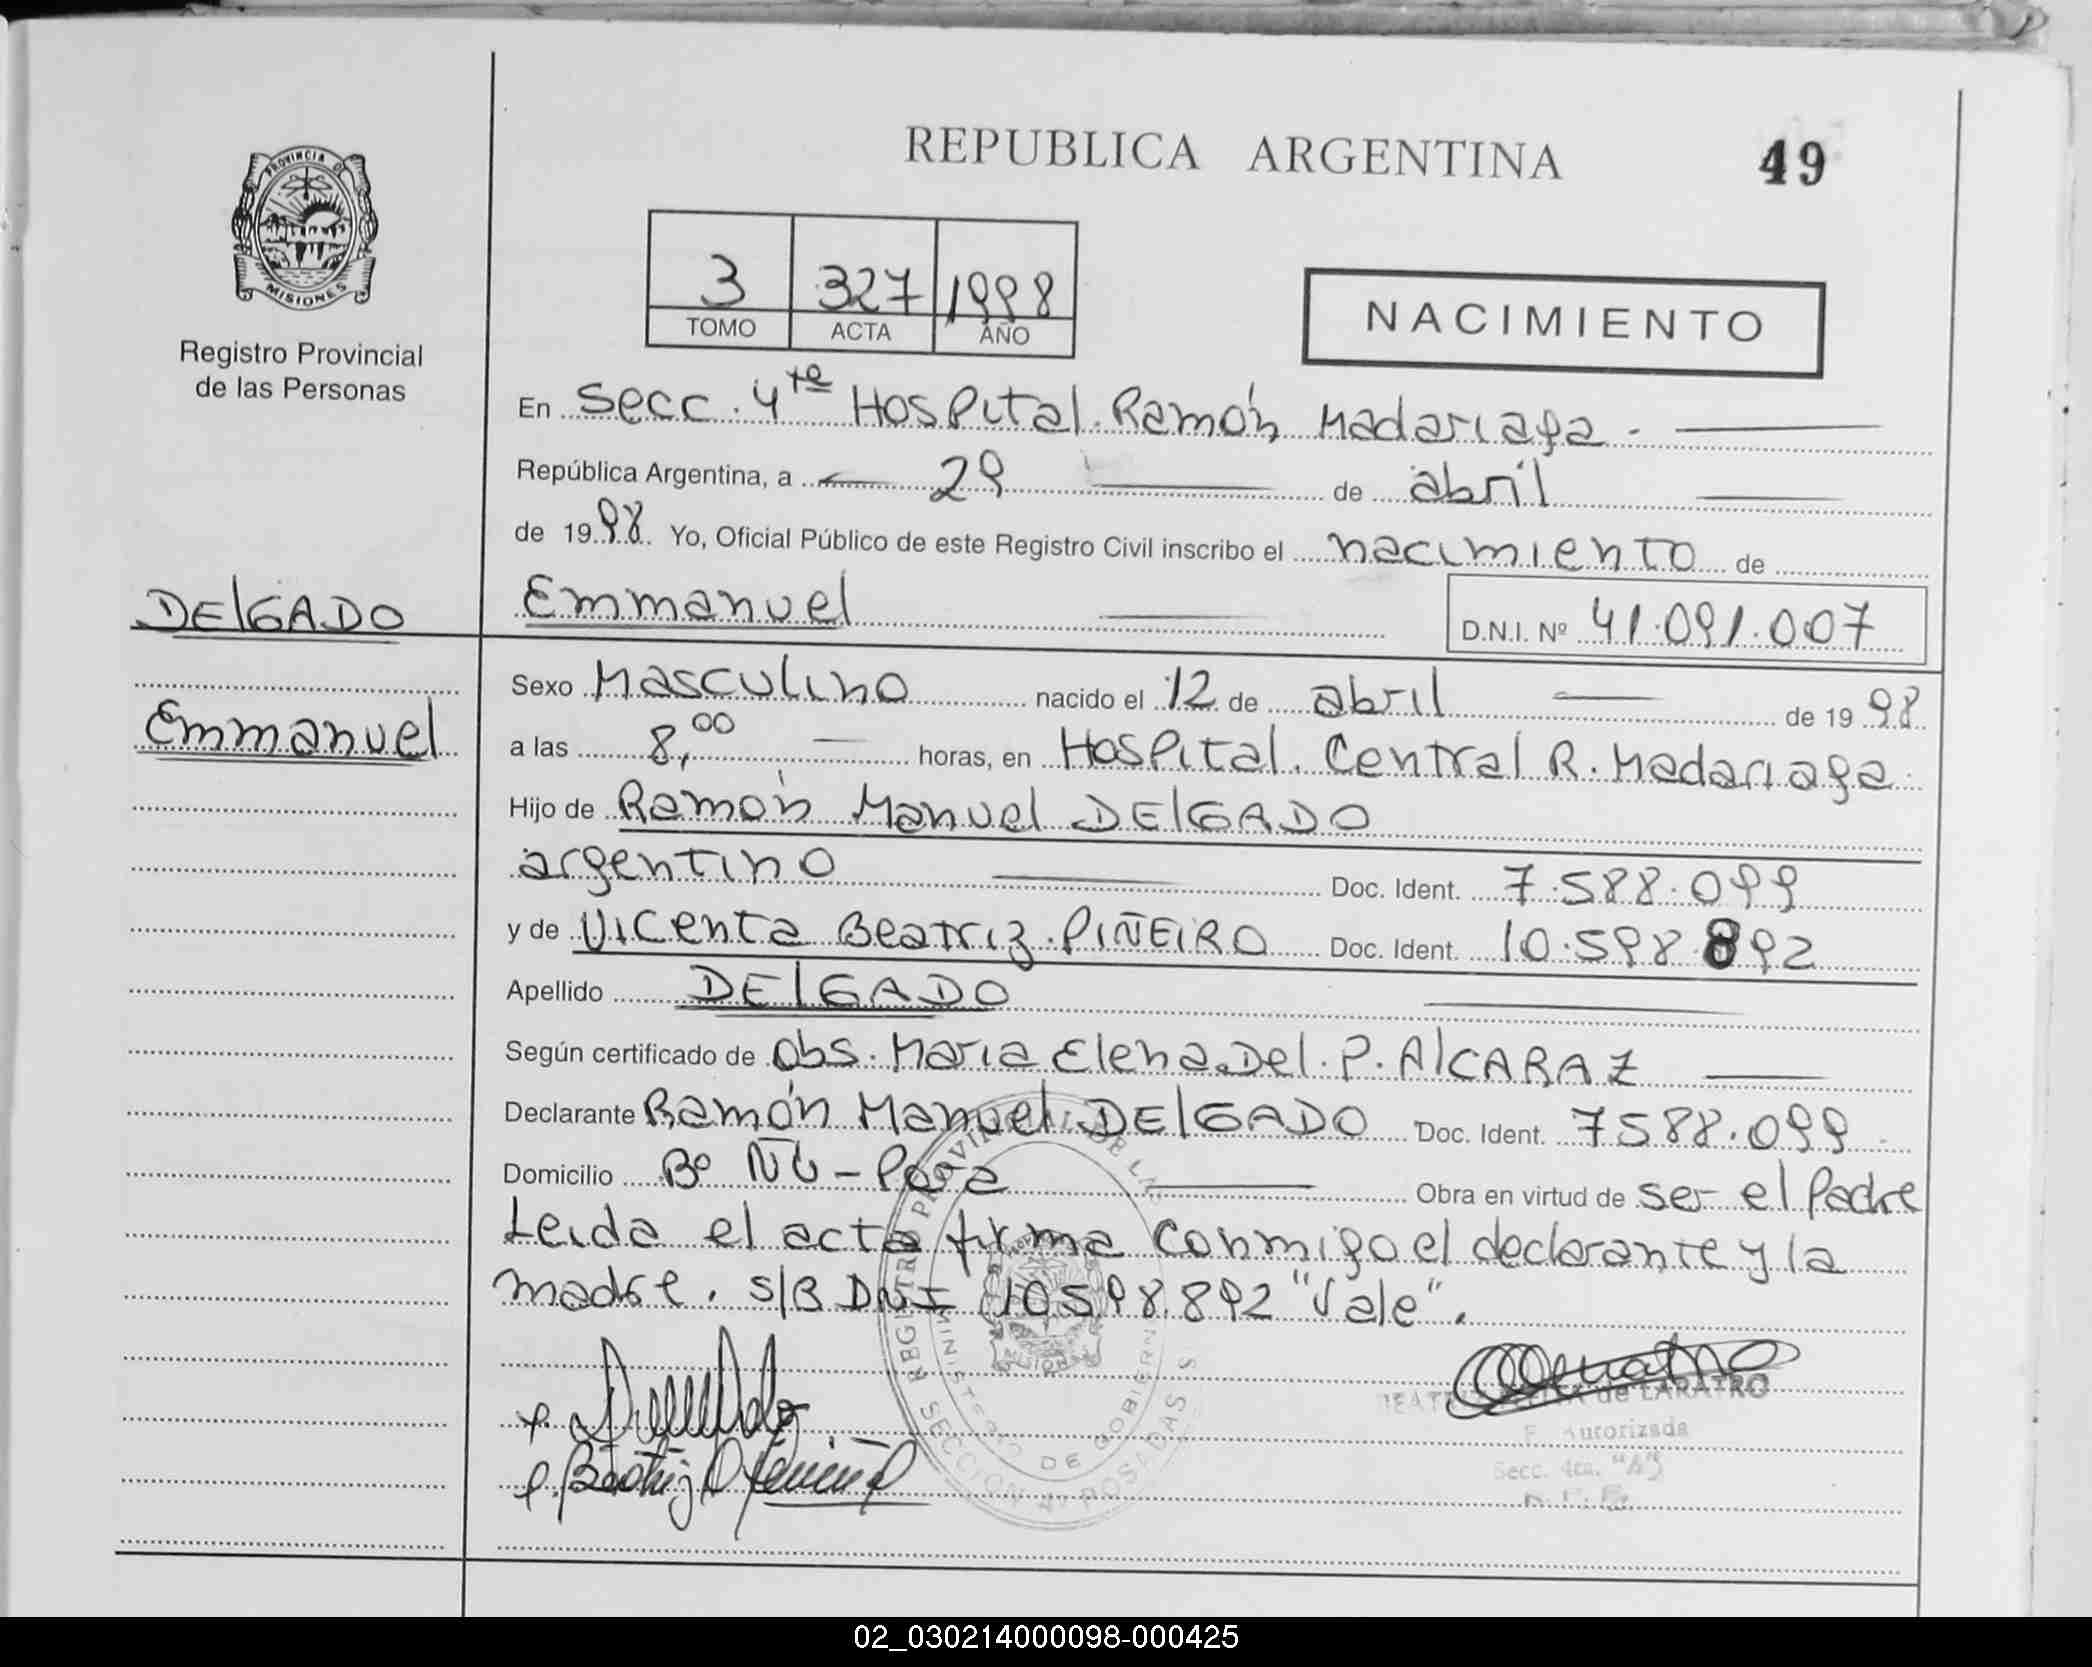 REPUBLICA ARGENTINA
49
PROVINCIA DE
MISIONES
Registro Provincial
de las Personas
3 327 1998
TOMO ACTA AÑO
NACIMIENTO
En Secc. 4ta Hospital Ramón Madariaga. —
República Argentina, a — 29 — de abril —
de 1998 Yo, Oficial Público de este Registro Civil inscribo el nacimiento de
DELGADO
Emmanuel — D.N.I. Nº 41.091.007
Sexo Masculino nacido el 12 de abril — de 1998
Emmanuel
a las 8,00 — horas, en Hospital Central R. Madariaga
Hijo de Ramón Manuel DELGADO
argentino — Doc. Ident. 7.588.099
y de Vicenta Beatriz PIÑEIRO Doc. Ident. 10.598.892
Apellido DELGADO —
Según certificado de Obs. Maria Elena Del P. AlCARAZ —
Declarante Ramón Manuel DELGADO Doc. Ident. 7588.099
Domicilio Bº ÑU-Porá — Obra en virtud de ser el Padre
Leida el acta firma conmigo el declarante y la
madre. S/B DNI 10598.892 "Vale".
REGISTRO PROVINCIAL DE LAS
MINISTERIO DE GOBIERNO
SECCION 4ª POSADAS
de LARATRO
Autorizada
Secc. 4ta. "A"
02_030214000098-000425